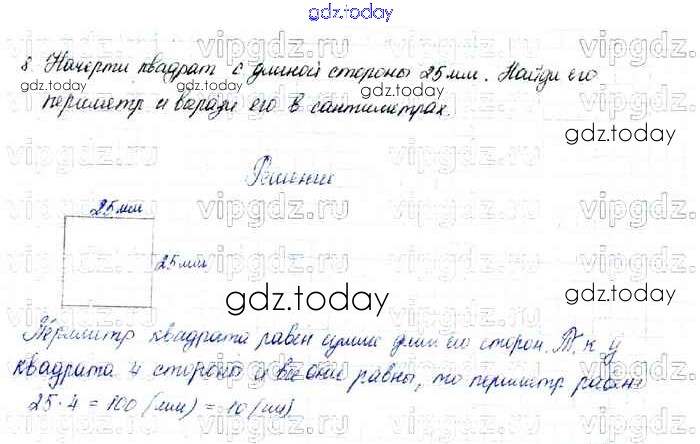 gdz.today
8 Начерти квадрат с длиной стороны 25 мм. Найди его
периметр и вырази его в сантиметрах.
gdz.today
gdz.today
vipgdz.ru
Решение
25 мм
25 мм
gdz.today
Периметр квадрата равен сумме длин его сторон. Т. к у
квадрата 4 стороны и все они равны, то периметр равен
25·4 = 100 (мм) = 10 (см)